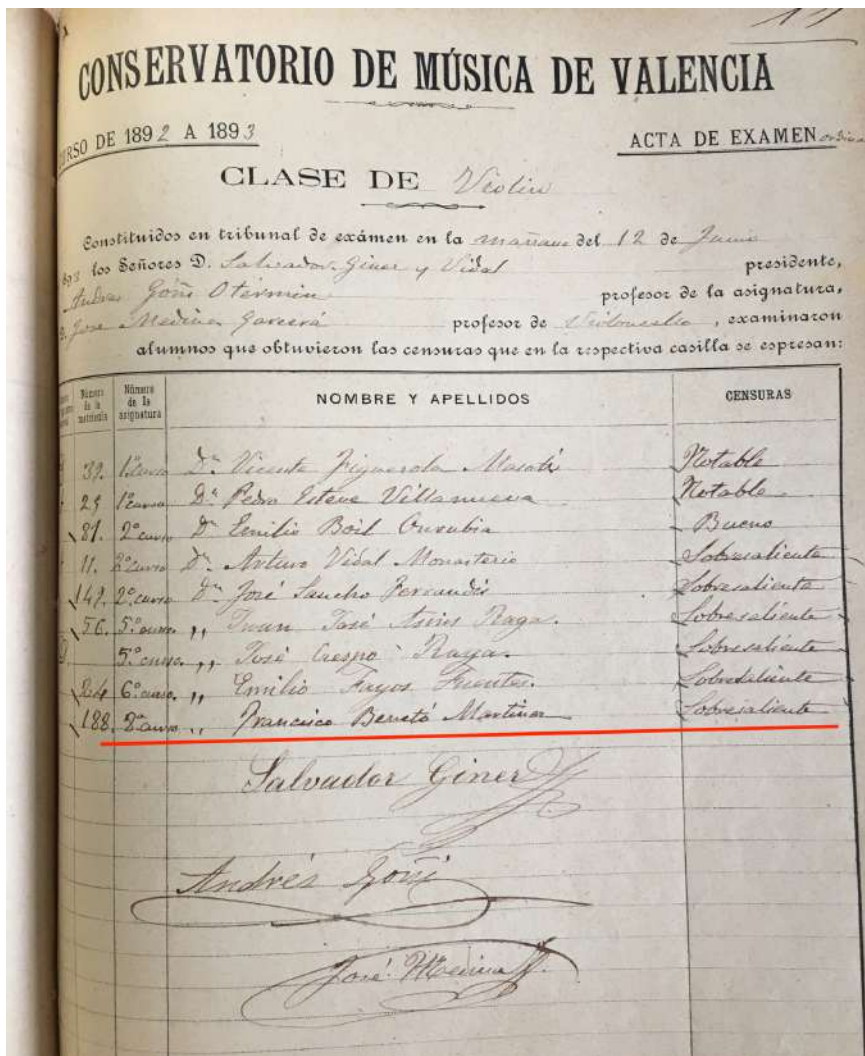 CONSERVATORIO DE MÚSICA DE VALENCIA
CURSO DE 1892 A 1893 ACTA DE EXAMEN
CLASE DE Violin
Constituidos en tribunal de exámen en la mañana del 12 de Junio
los Señores D. Salvador Giner y Vidal presidente,
Andres Goñi Otermin profesor de la asignatura,
D. Jose Medina Garcerá profesor de Violoncello, examinaron
alumnos que obtuvieron las censuras que en la respectiva casilla se espresan:
Número de la matrícula Número de la asignatura NOMBRE Y APELLIDOS CENSURAS
39. 1º curso Dn Vicente Figuerola Notable
25 1º curso Dn Pedro Esteve Villanueva Notable
81. 2º curso Dn Emilio Boil Bueno
11. 2º curso Dn Arturo Vidal Monasterio Sobresaliente
149. 2º curso Dn José Sancho Sobresaliente
56. 5º curso. ,, Juan José Raga. Sobresaliente
5º curso. ,, José Crespo Raga. Sobresaliente
84 6º curso. ,, Emilio Fayos Fuentes. Sobresaliente
188. 8º curso ,, Francisco Benetó Martinez Sobresaliente
Salvador Giner
Andrés Goñi
José Medina